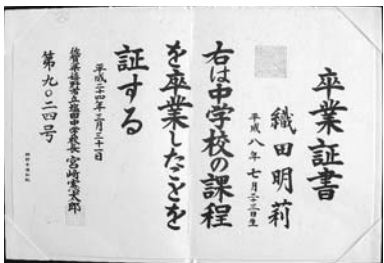 卒業証書
織田明莉
平成八年七月二十三日生
右は中学校の課程
を卒業したことを
証する
平成二十四年三月三十一日
佐賀県嬉野市立塩田中学校長 宮﨑寛太郎
第九〇二四号